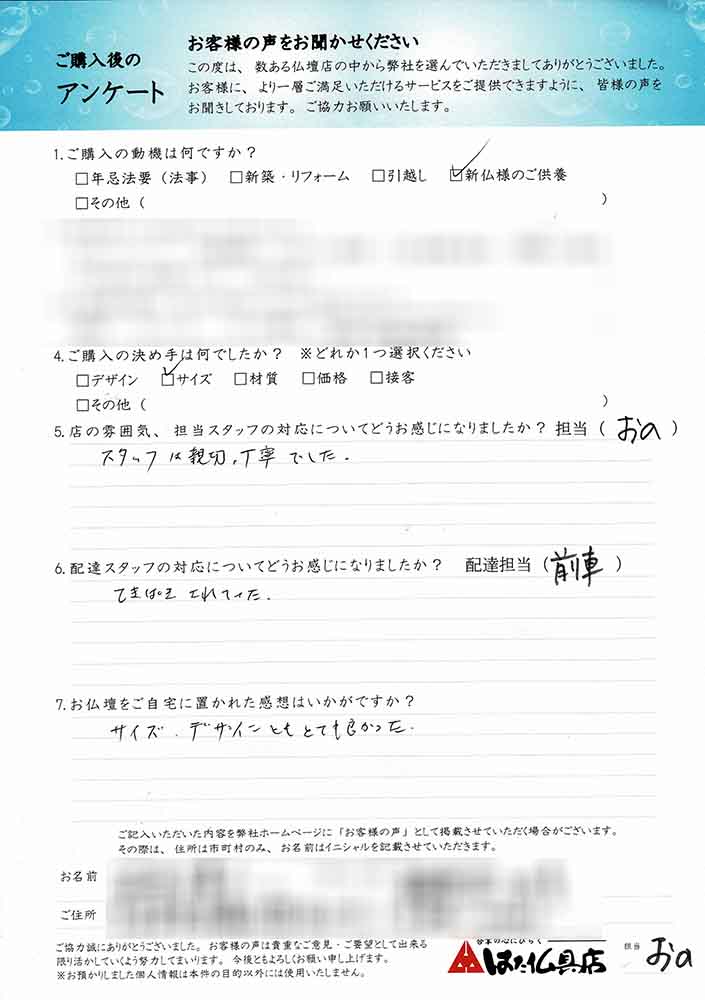 お客様の声をお聞かせください
ご購入後の
アンケート
この度は、数ある仏壇店の中から弊社を選んでいただきましてありがとうございました。
お客様に、より一層ご満足いただけるサービスをご提供できますように、皆様の声を
お聞きしております。ご協力お願いいたします。
1.ご購入の動機は何ですか？
□年忌法要（法事） □新築・リフォーム □引越し ☑新仏様のご供養
□その他（ ）
4.ご購入の決め手は何でしたか？ ※どれか1つ選択ください
□デザイン ☑サイズ □材質 □価格 □接客
□その他（ ）
5.店の雰囲気、担当スタッフの対応についてどうお感じになりましたか？担当（おの）
スタッフは親切,丁寧でした.
6.配達スタッフの対応についてどうお感じになりましたか？ 配達担当（前車）
7.お仏壇をご自宅に置かれた感想はいかがですか？
サイズ.デザインともとても良かった.
ご記入いただいた内容を弊社ホームページに「お客様の声」として掲載させていただく場合がございます。
その際は、住所は市町村のみ、お名前はイニシャルを記載させていただきます。
お名前
ご住所
ご協力誠にありがとうございました。お客様の声は貴重なご意見・ご要望として出来る
限り活かしていくよう努力してまいります。今後ともよろしくお願い申し上げます。
※お預かりしました個人情報は本件の目的以外には使用いたしません。
はた仏具店
担当 おの